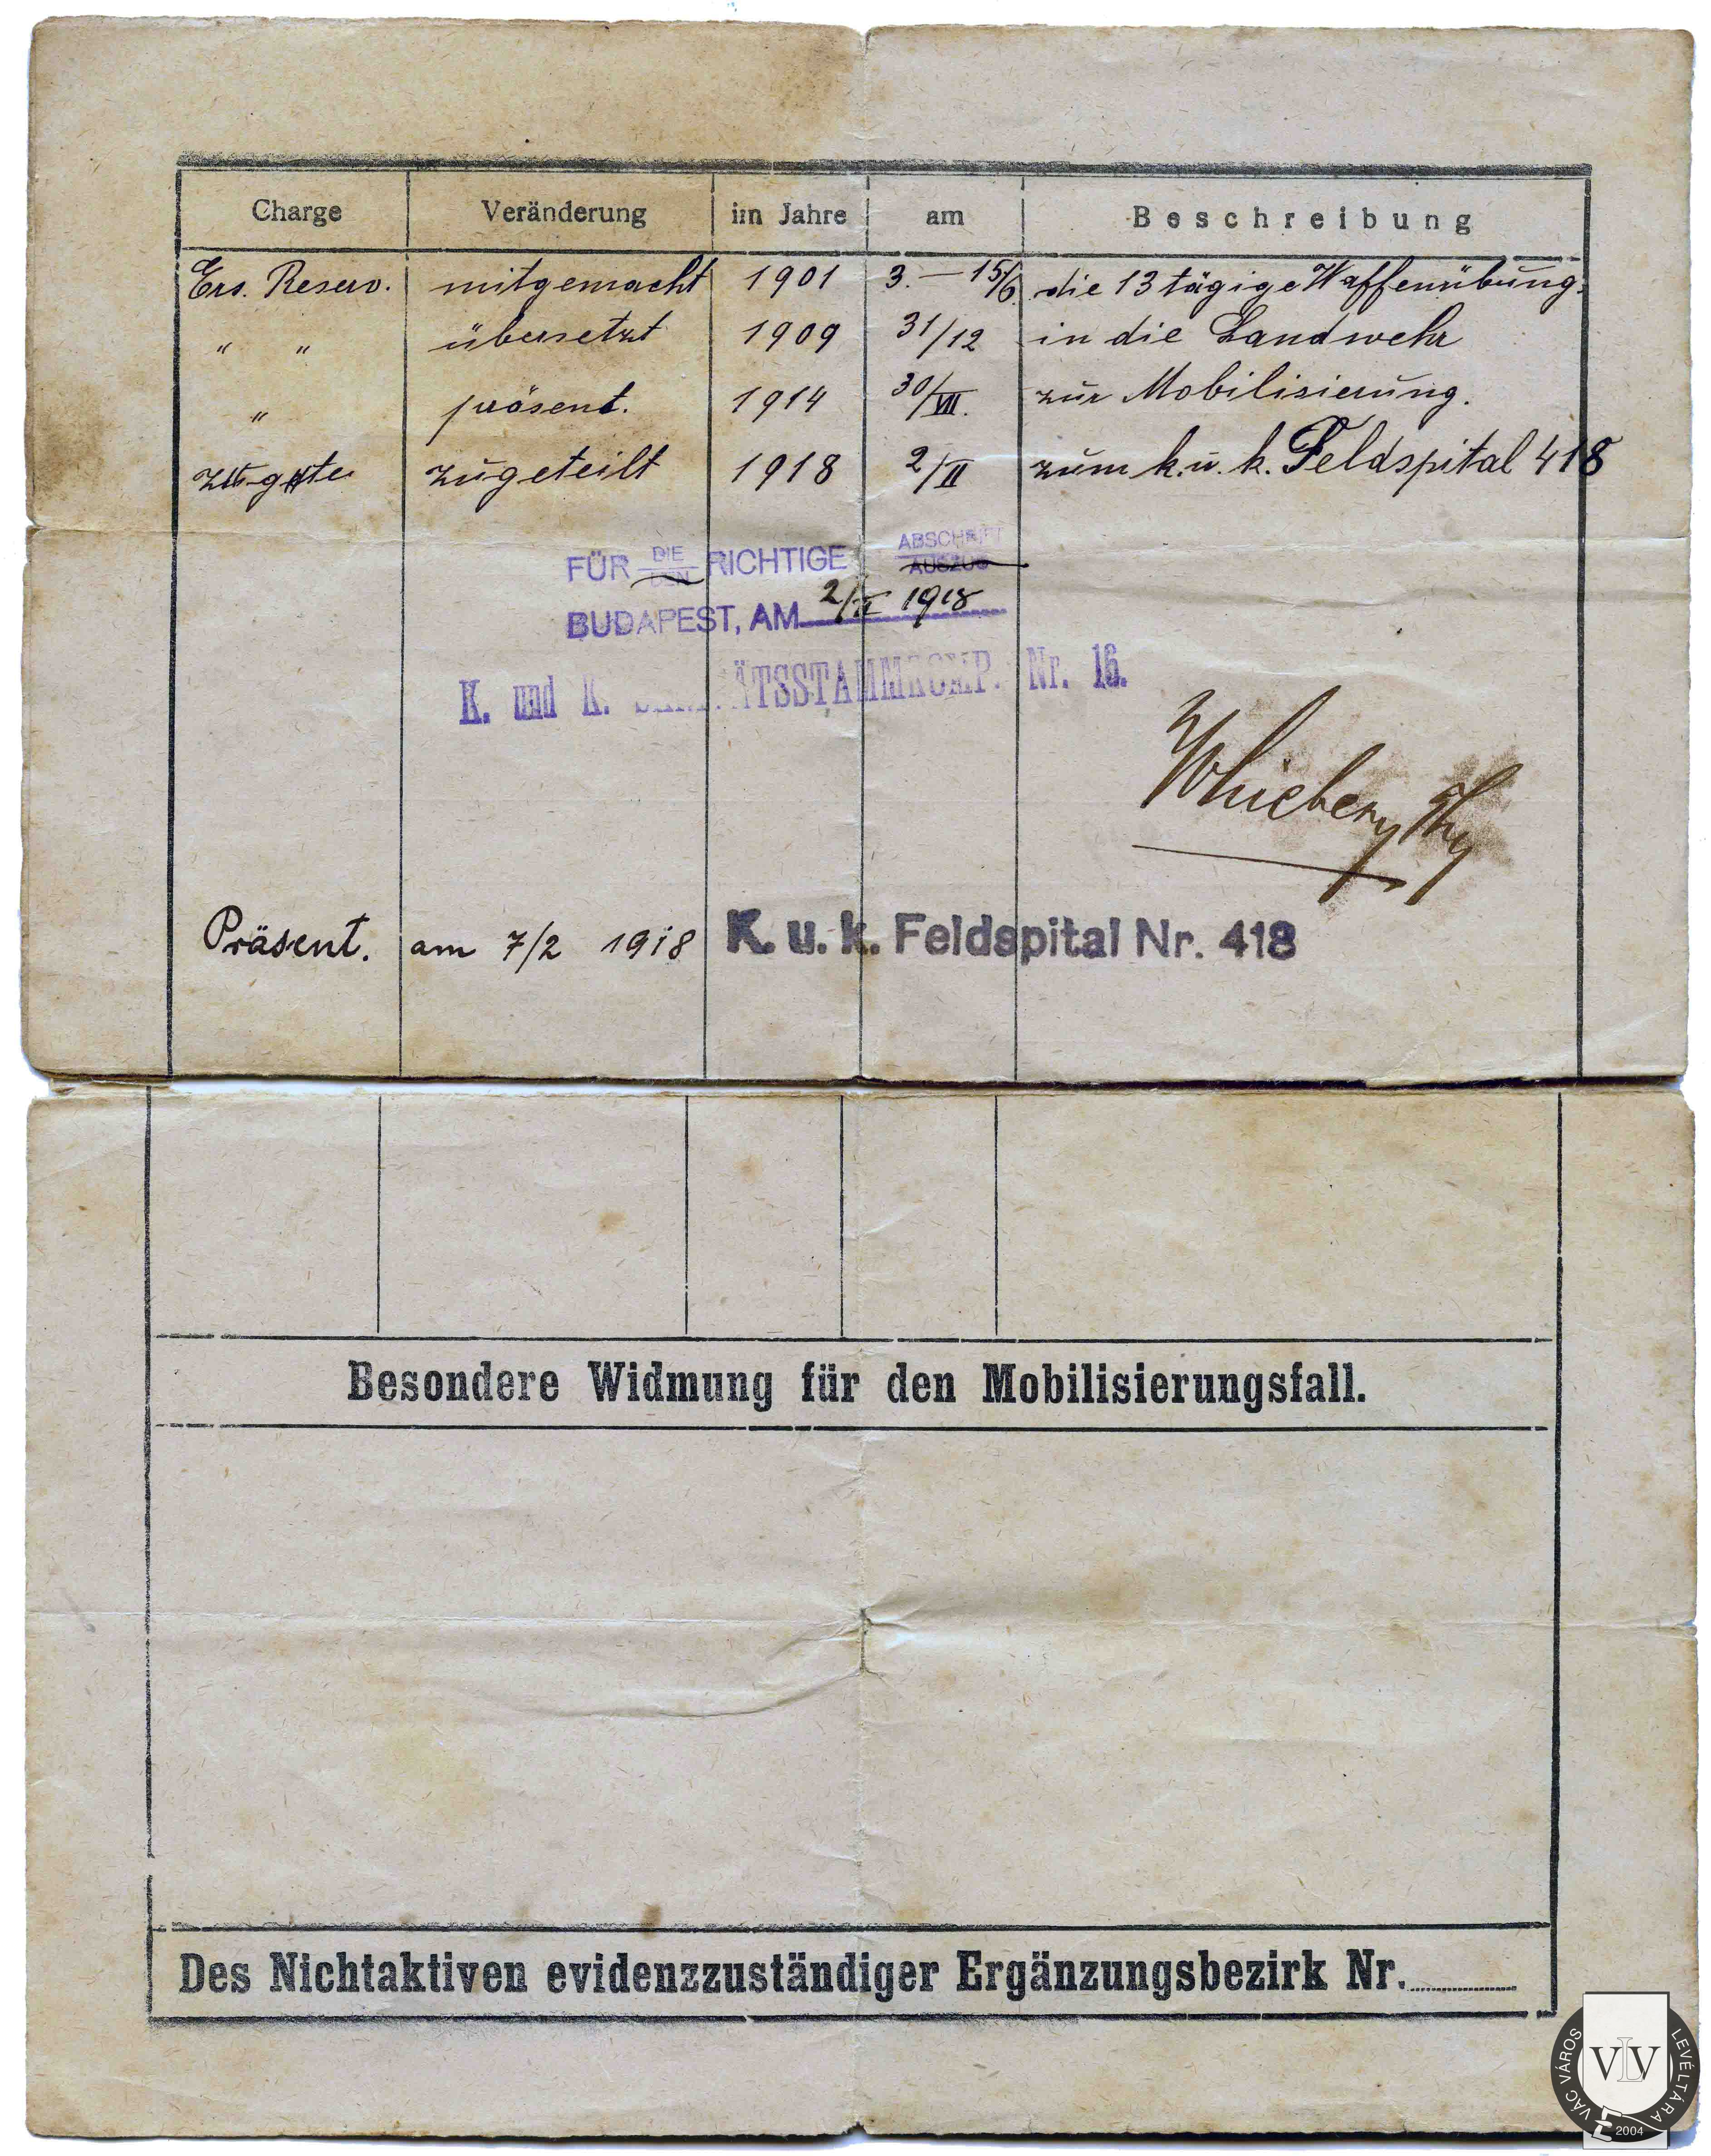 Charge Veränderung im Jahre am Beschreibung
Ers. Reserv. mitgemacht 1901 3. – 15/6. die 13 tägige Waffenübung.
" " übersetzt 1909 31/12 in die Landwehr
" präsent. 1914 30/VII. zur Mobilisierung.
zugeteilt 1918 2/II zum k. u. k. Feldspital 418
FÜR DIE RICHTIGE ABSCHRIFT
AUSZUG
BUDAPEST, AM 2/II 1918
K. und K. SANITÄTSSTAMMKOMP. Nr. 16.
Präsent. am 7/2 1918 K. u. k. Feldspital Nr. 418
Besondere Widmung für den Mobilisierungsfall.
Des Nichtaktiven evidenzzuständiger Ergänzungsbezirk Nr.
VÁC VÁROS LEVÉLTÁRA
VLV
2004